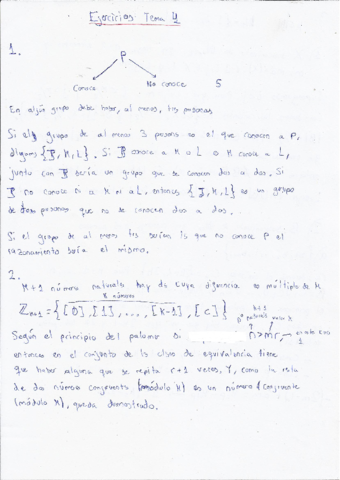 Ejercicios Tema 4
1.
P
Conoce No conoce 5
En algún grupo debe haber, al menos, tres personas.
Si el grupo de al menos 3 personas es el que conocen a P,
digamos {J, M, L}. Si J conoce a M o L o M conoce a L,
junto con P sería un grupo que se conocen dos a dos. Si
J no conoce ni a M ni a L, entonces {J, M, L} es un grupo
de personas que no se conocen dos a dos.
Si el grupo de al menos tres serían los que no conoce P el
razonamiento sería el mismo.
2.
K+1 número naturales hay dos cuya diferencia es múltiplo de K.
K números
= {[0], [1], ..., [K-1], [C]} K+1
Según el principio del palomar si n>mr,
1
entonces en el conjunto de las clases de equivalencia tiene
que haber alguna que se repita r+1 veces. Y, como la resta
de dos números congruentes (módulo K) es un número congruente
(módulo K), queda demostrado.